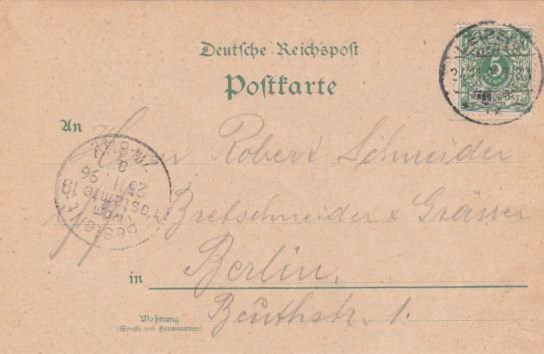 Deutsche Reichspost
Postkarte
5
An
Herrn Robert Schneider
Bretschneider & Grässer
in Berlin,
Beuthstr. 1.
Bestellt
vom
Postamte 19
25/11 96
Wohnung
(Straße und Hausnummer)